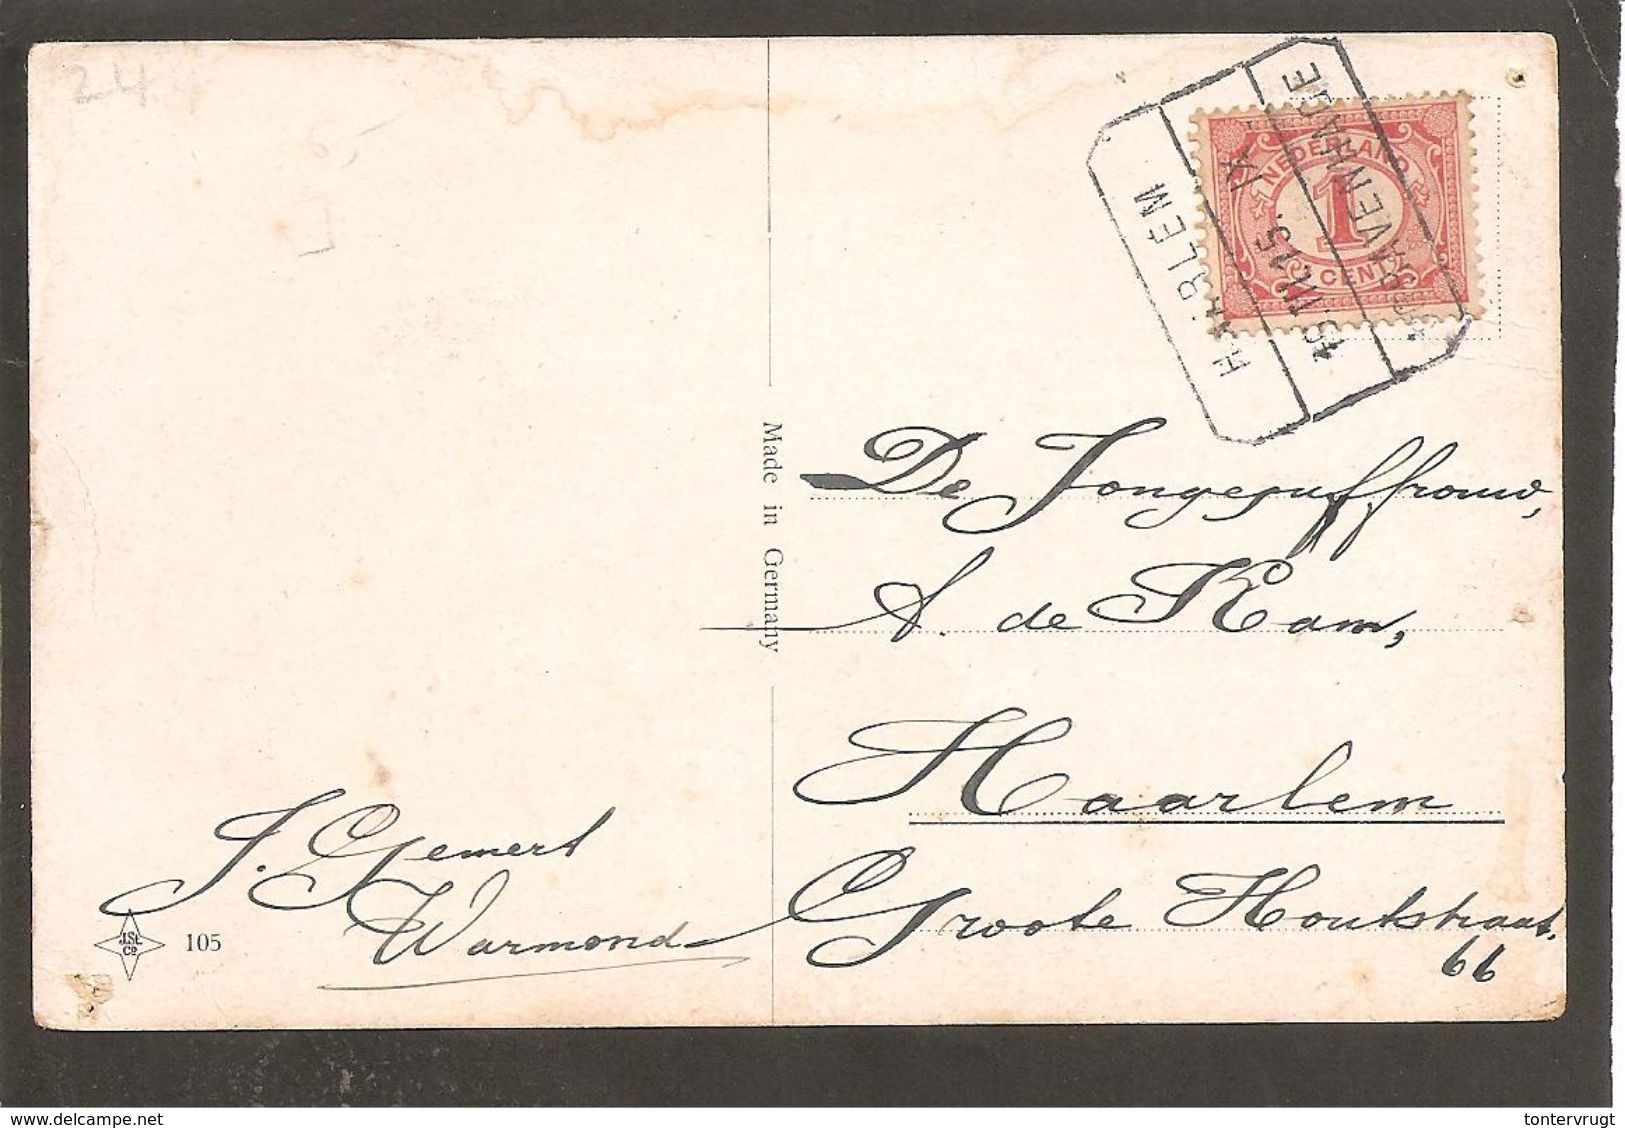 244
5,
HAARLEM
IX
15.
'SGRAVENHAGE
NEDERLAND
1
CENT
Made in Germany
De Jongejuffrouw,
A. de Kam,
Haarlem
Groote Houtstraat.
66
J. Gemert
Warmond
J.St.
Co
105
delcampe.net
tontervrugt